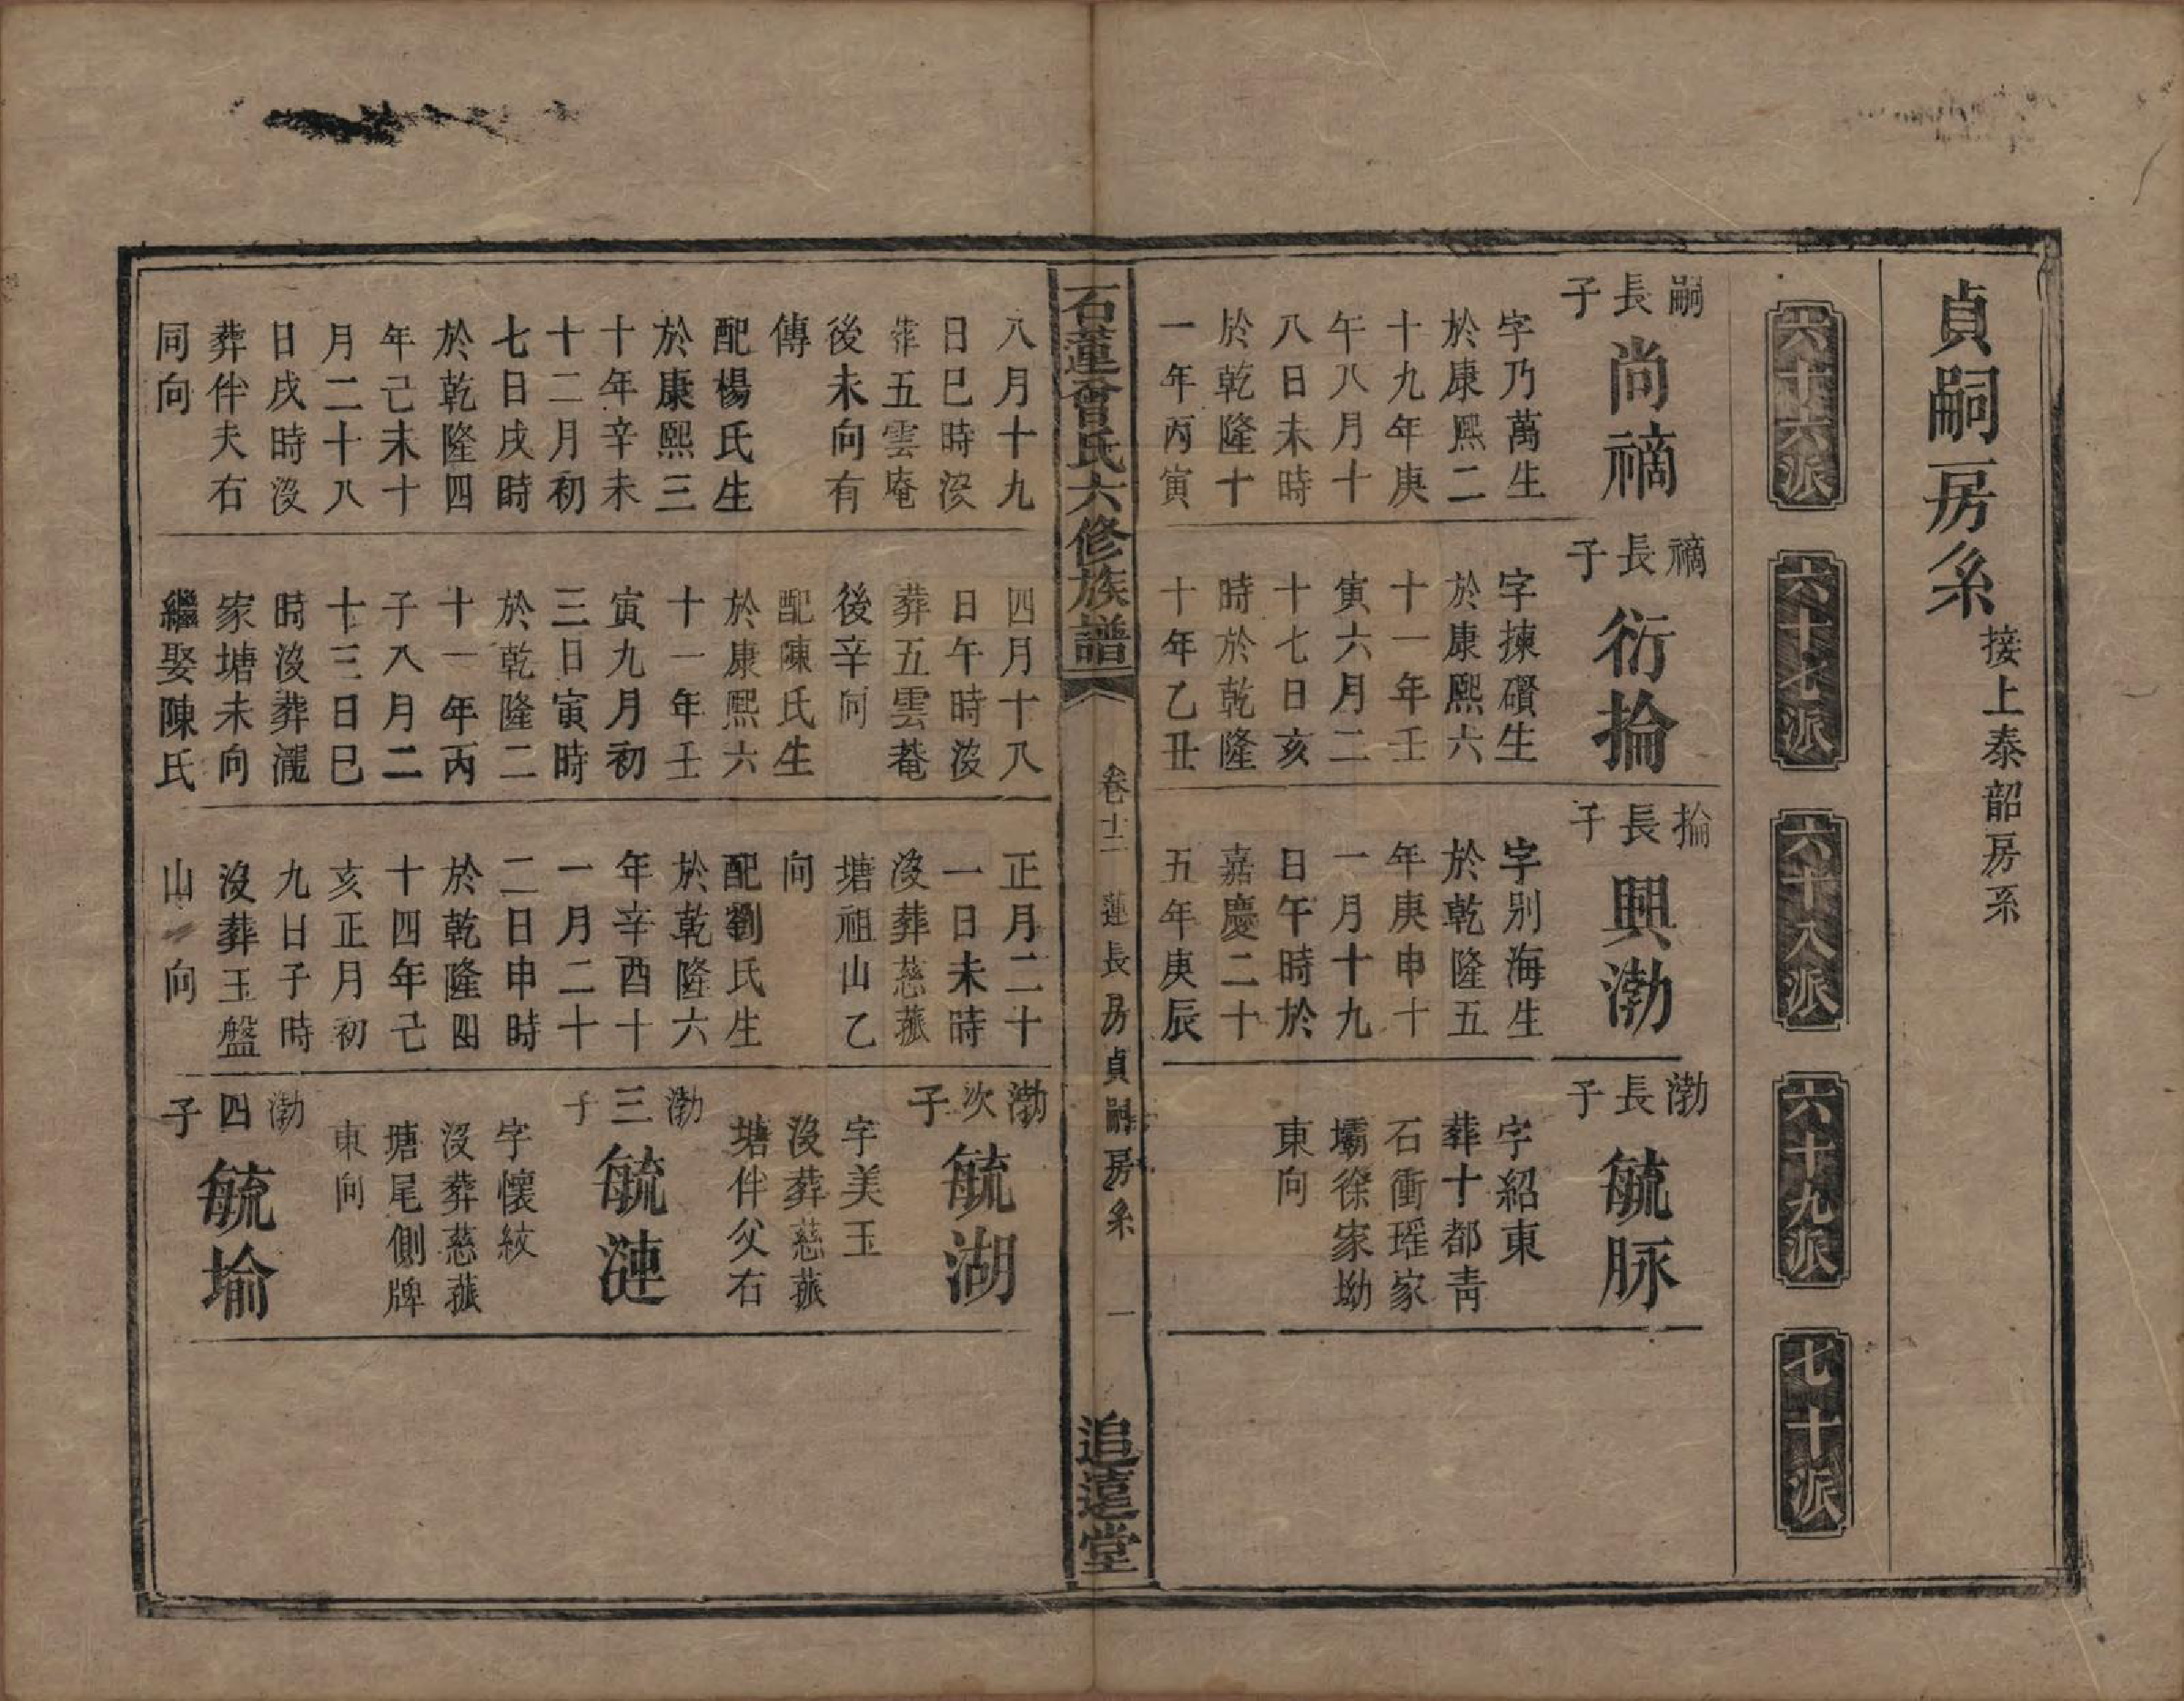 貞嗣房系
接上泰韶房系
六十六派
六十七派
六十八派
六十九派
七十派
嗣長子
尚禘
字乃萬生
於康熙二
十九年庚
午八月十
八日未時
於乾隆十
一年丙寅
禘長子
衍掄
字揀礸生
於康熙六
十一年壬
寅六月二
十七日亥
時於乾隆
十年乙丑
掄長子
興渤
字别海生
於乾隆五
年庚申十
一月十九
日午時於
嘉慶二十
五年庚辰
渤長子
毓脉
字紹東
葬十都靑
石衝瑶家
壩徐家坳
東向
石蓮曾氏六修族譜
卷十二
蓮長房貞嗣房系
一
追遠堂
八月十九
日巳時沒
葬五雲庵
後未向有
傳
配楊氏生
於康熙三
十年辛未
十二月初
七日戌時
於乾隆四
年己未十
月二十八
日戌時沒
葬伴夫右
同向
四月十八
日午時沒
葬五雲菴
後辛向
配陳氏生
於康熙六
十一年壬
寅九月初
三日寅時
於乾隆二
十一年丙
子八月二
十三日巳
時沒葬瀧
家塘未向
繼娶陳氏
正月二十
一日未時
沒葬慈菰
塘祖山乙
向
配劉氏生
於乾隆六
年辛酉十
一月二十
二日申時
於乾隆四
十四年己
亥正月初
九日子時
沒葬玉盤
山向
渤次子
毓湖
字美玉
沒葬慈菰
塘伴父右
渤三子
毓漣
字懷紋
沒葬慈菰
塘尾側牌
東向
渤四子
毓埨